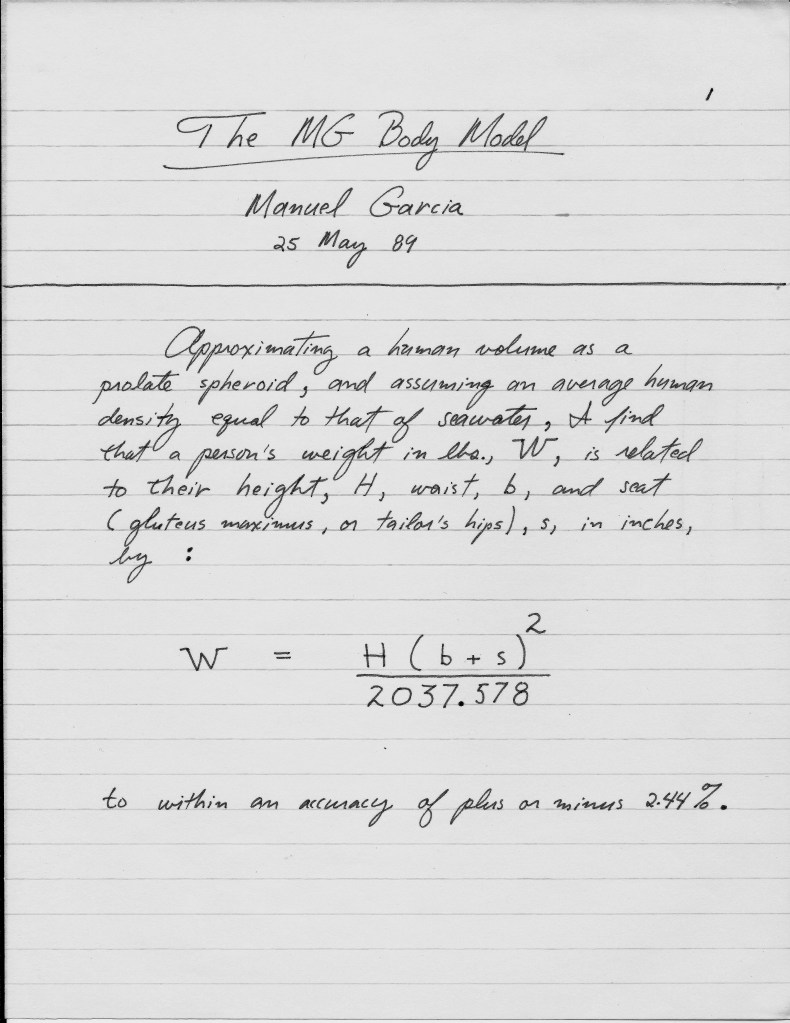 1
The MG Body Model
Manuel Garcia
25 May 89
Approximating a human volume as a
prolate spheroid, and assuming an average human
density equal to that of seawater, I find
that a person's weight in lbs., W, is related
to their height, H, waist, b, and seat
(gluteus maximus, or tailor's hips), s, in inches,
by :
W = H (b + s)²
2037.578
to within an accuracy of plus or minus 2.44%.